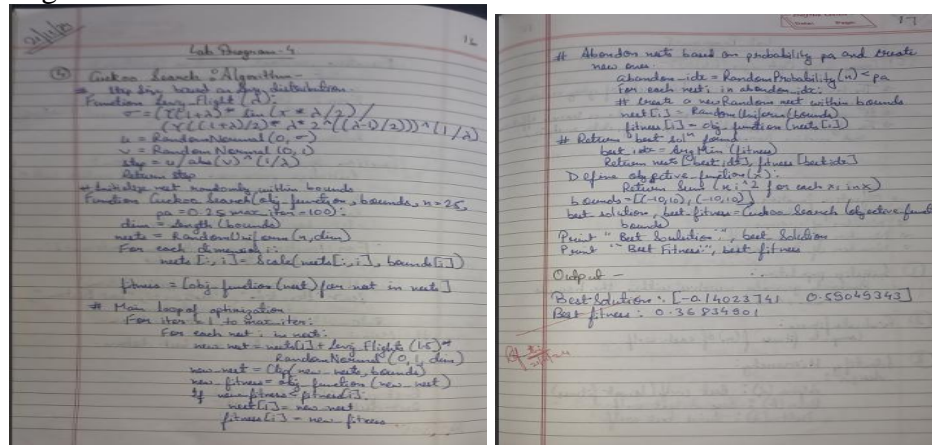 12
Lab Program-4
Cuckoo Search : Algorithm -
# step size based on levy distribution
Function Levy_flight (λ):
σ = (γ(1+λ) * sin (π * λ/2) /
(γ((1+λ)/2) * λ * 2^((λ-1)/2)))^(1/λ)
u = RandomNormal (0, σ)
v = RandomNormal (0, 1)
step = u / abs(v)^(1/λ)
Return step
# Initialize nest randomly within bounds
Function Cuckoo Search (obj-function, bounds, n=25,
pa = 0.25 max_iter = 100):
dim = length (bounds)
nests = RandomUniform (n, dim)
For each dimension i:
nests [:, i] = Scale (nests[:, i], bounds[i])
fitness = [obj-function (nest) for nest in nests]
# Main loop of optimization
For iter = 1 to max_iter:
For each nest i in nests:
new_nest = nests[i] + Levy_flights (1.5) *
RandomNormal (0, 1, dim)
new_nest = Clip (new_nests, bounds)
new_fitness = obj_function (new_nest)
If new fitness < fitness[i]:
nest[i] = new_nest
fitness[i] = new_fitness
17
# Abandon nests based on probability pa and create
new ones.
abandon_idx = RandomProbability (n) < pa
For each nest i in abandon_idx:
# create a new Random nest within bounds
nest [i] = Random Uniform (bounds)
fitness [i] = obj_function (nests [i])
# Return best sol^n found
best idx = Arg Min (fitness)
Return nests [best idx], fitness [best idx]
Define objective_function (x):
Return Sum (xi^2 for each xi in x)
bounds = [(-10,10), (-10,10)]
best solution, best-fitness = Cuckoo Search (objective func
bounds)
Print "Best Soulution:", best Solution
Print "Best Fitness:", best fitness
Output -
Best Solution : [-0.14023741 0.59049343]
Best fitness : 0.36834901